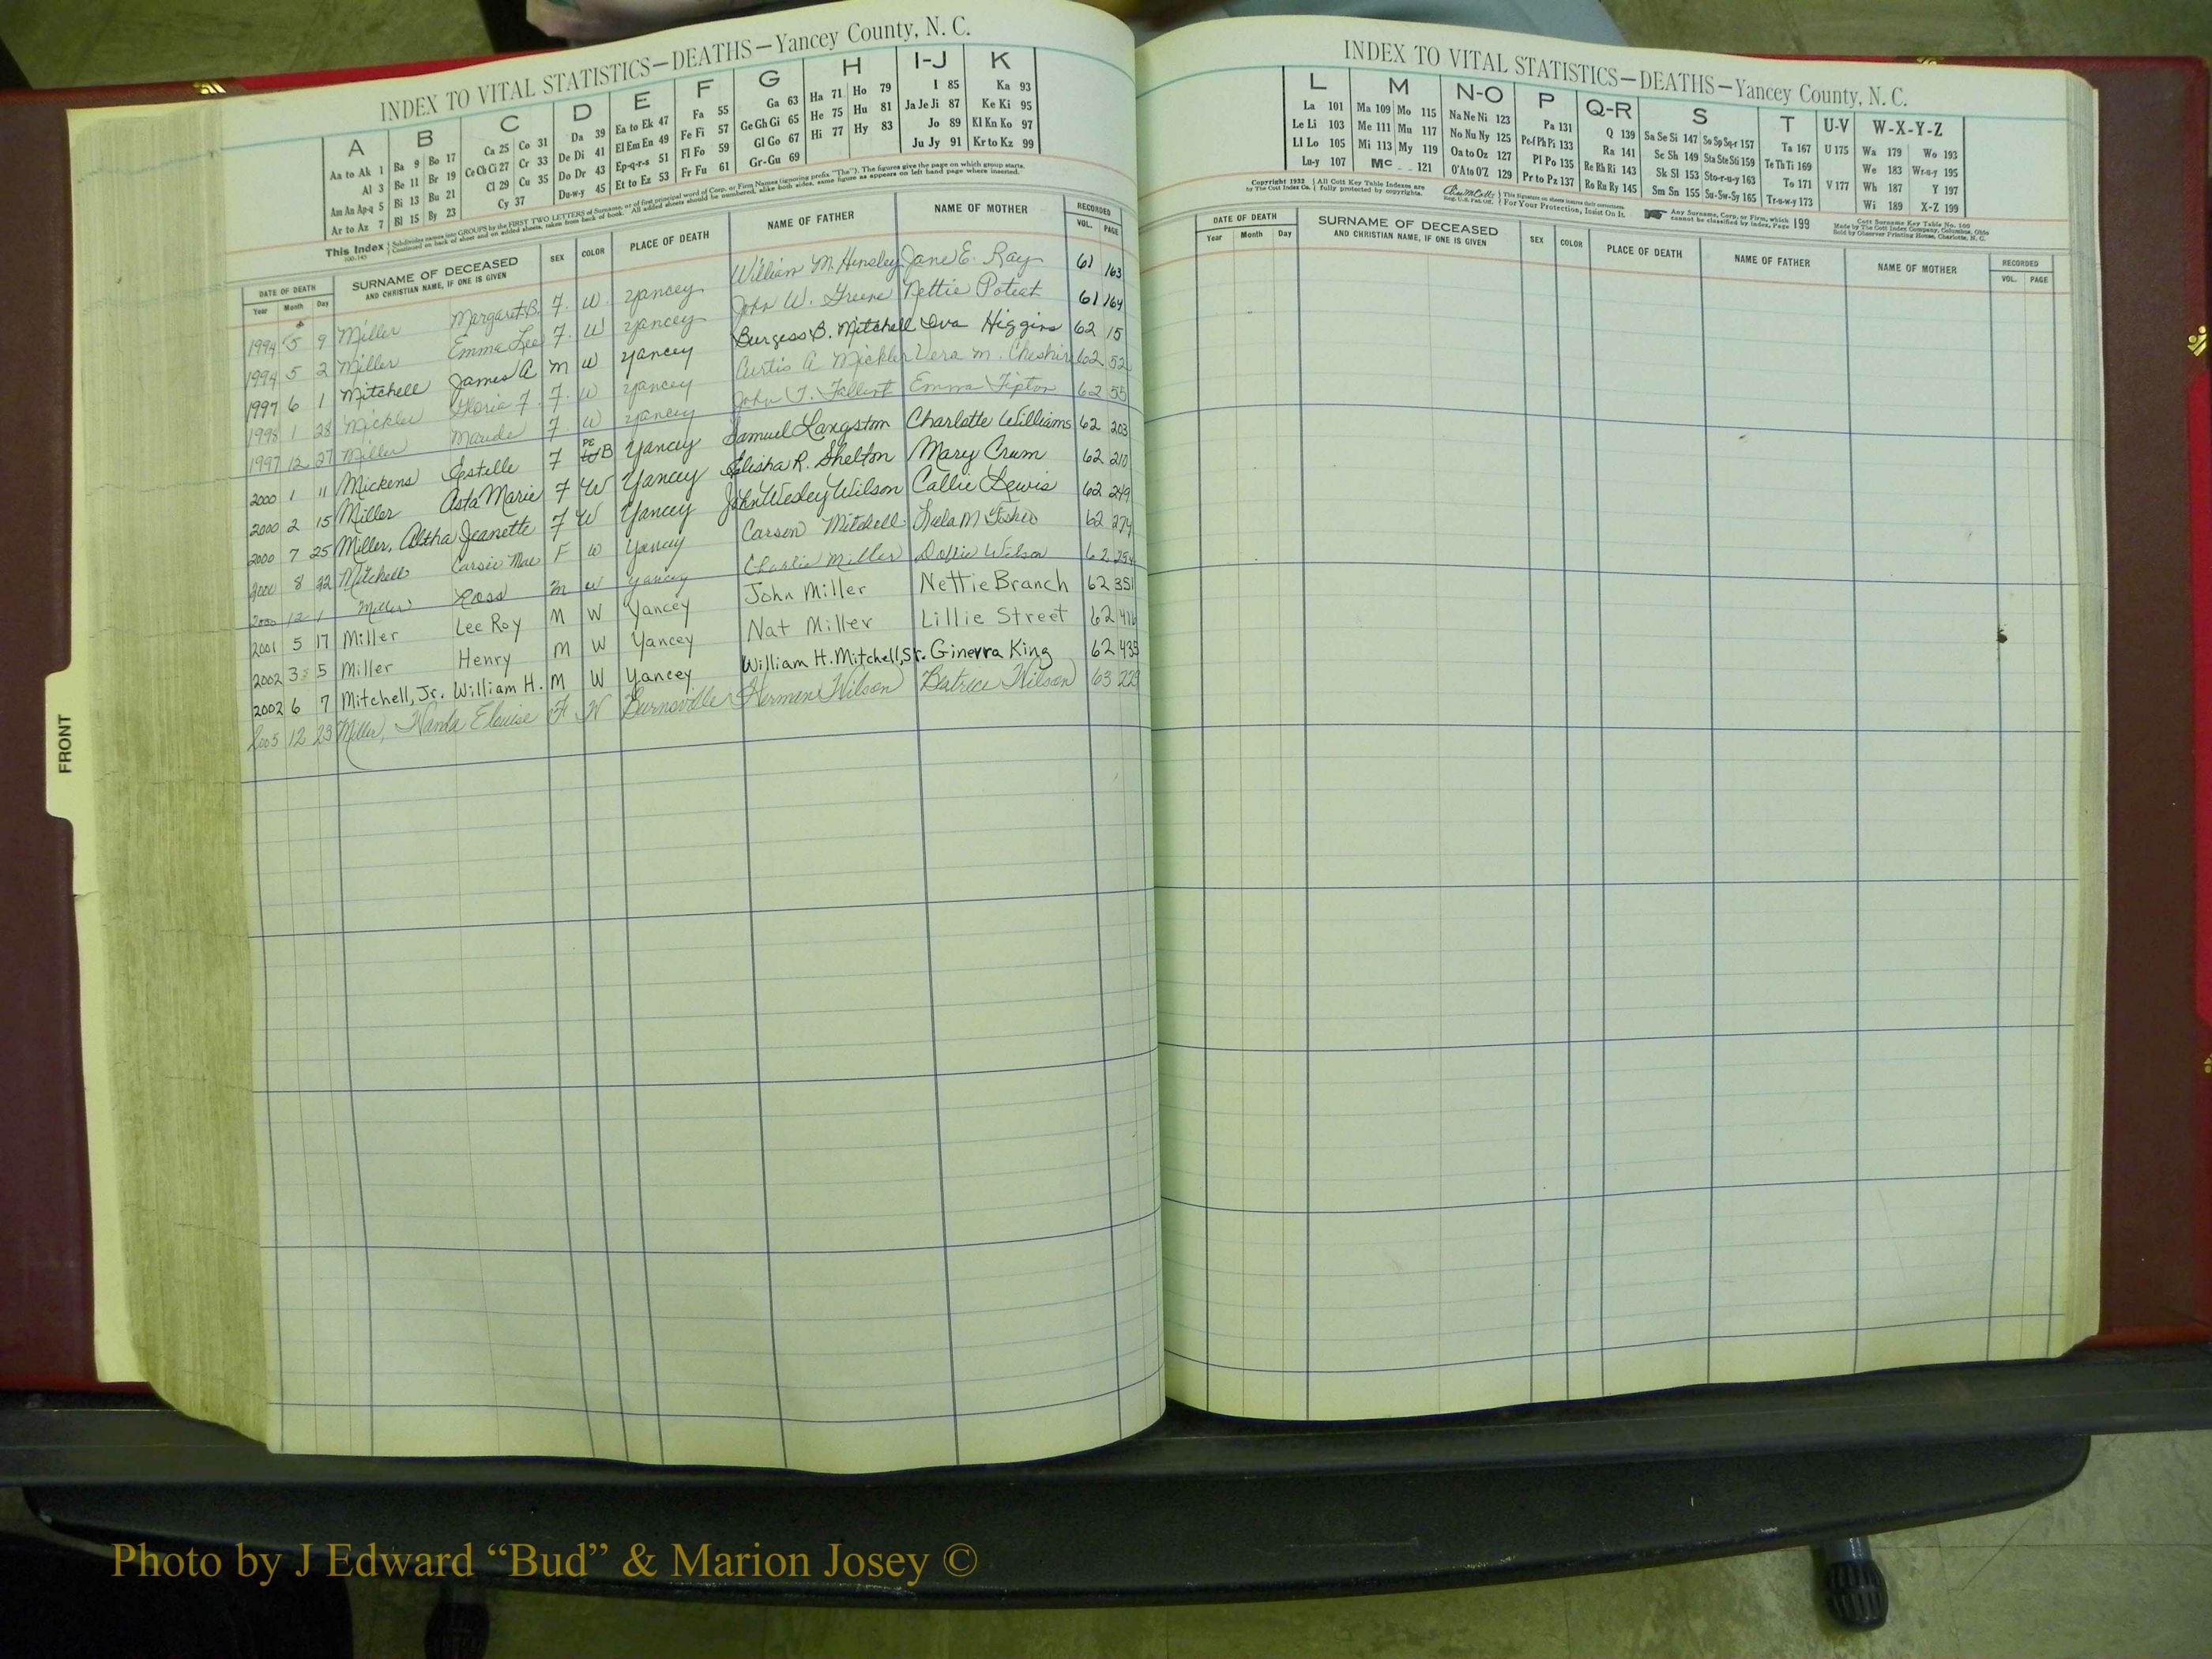 INDEX TO VITAL STATISTICS—DEATHS—Yancey County, N. C.
A B C D E F G H I-J K
Aa to Ak 1 Ba 9 Bo 17 Ca 25 Co 31 Da 39 Ea to Ek 47 Fa 55 Ga 63 Ha 71 Ho 79 I 85 Ka 93
Al 3 Be 11 Br 19 Ce Ch Ci 27 Cr 33 De Di 41 El Em En 49 Fe Fi 57 Ge Gh Gi 65 He 75 Hu 81 Ja Je Ji 87 Ke Ki 95
Am An Ap-q 5 Bi 13 Bu 21 Cl 29 Cu 35 Do Dr 43 Ep-q-r-s 51 Fl Fo 59 Gl Go 67 Hi 77 Hy 83 Jo 89 Kl Kn Ko 97
Ar to Az 7 Bl 15 By 23 Cy 37 Du-w-y 45 Et to Ez 53 Fr Fu 61 Gr-Gu 69 Ju Jy 91 Kr to Kz 99
This Index Subdivides names into GROUPS by the FIRST TWO LETTERS of Surname, or of first principal word of Corp. or Firm Names (ignoring prefix "The"). The figures give the page on which group starts.
Continued on back of sheet and on added sheets, taken from back of book. All added sheets should be numbered, alike both sides, same figure as appears on left hand page where inserted.
DATE OF DEATH SURNAME OF DECEASED SEX COLOR PLACE OF DEATH NAME OF FATHER NAME OF MOTHER RECORDED
Year Month Day AND CHRISTIAN NAME, IF ONE IS GIVEN VOL. PAGE
1994 5 9 Miller Margaret B. F. W. Yancey William M. Hensley Jane E. Ray 61 163
1994 5 2 Miller Emma Lee F. W Yancey John W. Greene Nettie Poteat 61 164
1997 6 1 Mitchell James A M W Yancey Burgess B. Mitchell Iva Higgins 62 15
1998 1 28 Mickler Gloria F. F. W Yancey Curtis A Mickler Vera M. Cheshire 62 52
1997 12 27 Miller Maude F W Yancey John T. Emma Tipton 62 55
2000 1 11 Mickens Estelle F B Yancey Samuel Langston Charlotte Williams 62 203
2000 2 15 Miller Asta Marie F W Yancey Elisha R. Shelton Mary Crum 62 210
2000 7 25 Miller, Altha Jeanette F W Yancey John Wesley Wilson Callie Lewis 62 249
2000 8 22 Mitchell Carsie Mae F W Yancey Carson Mitchell Lula M 62 274
2000 12 1 Miller Ross M W Yancey Charlie Miller Dollie Wilson 62
2001 5 17 Miller Lee Roy M W Yancey John Miller Nettie Branch 62 351
2002 3 5 Miller Henry M W Yancey Nat Miller Lillie Street 62 416
2002 6 7 Mitchell, Jr. William H. M W Yancey William H. Mitchell, Sr. Ginerra King 62 435
2005 12 23 Miller, Wanda Elouise F W Burnsville Herman Wilson Beatrice Wilson 63
FRONT
INDEX TO VITAL STATISTICS—DEATHS—Yancey County, N. C.
L M N-O P Q-R S T U-V W-X-Y-Z
La 101 Ma 109 Mo 115 Na Ne Ni 123 Pa 131 Q 139 Sa Se Si 147 So Sp Sq-r 157 Ta 167 U 175 Wa 179 Wo 193
Le Li 103 Me 111 Mu 117 No Nu Ny 125 Pe-f Ph Pi 133 Ra 141 Sc Sh 149 Sta Ste Sti 159 Te Th Ti 169 We 183 Wr-u-y 195
Ll Lo 105 Mi 113 My 119 Oa to Oz 127 Pl Po 135 Re Rh Ri 143 Sk Sl 153 Sto-r-u-y 163 To 171 V 177 Wh 187 Y 197
Lu-y 107 Mc 121 O'A to O'Z 129 Pr to Pz 137 Ro Ru Ry 145 Sm Sn 155 Su-Sw-Sy 165 Tr-u-w-y 173 Wi 189 X-Z 199
Copyright 1932 by The Cott Index Co. All Cott Key Table Indexes are fully protected by copyrights. For Your Protection, Insist On It. Any Surname, Corp. or Firm, which cannot be classified by index, Page 199
Made by The Cott Index Company, Columbus, Ohio
Sold by Observer Printing House, Charlotte, N. C.
DATE OF DEATH SURNAME OF DECEASED SEX COLOR PLACE OF DEATH NAME OF FATHER NAME OF MOTHER RECORDED
Year Month Day AND CHRISTIAN NAME, IF ONE IS GIVEN VOL. PAGE
Photo by J Edward “Bud” & Marion Josey ©